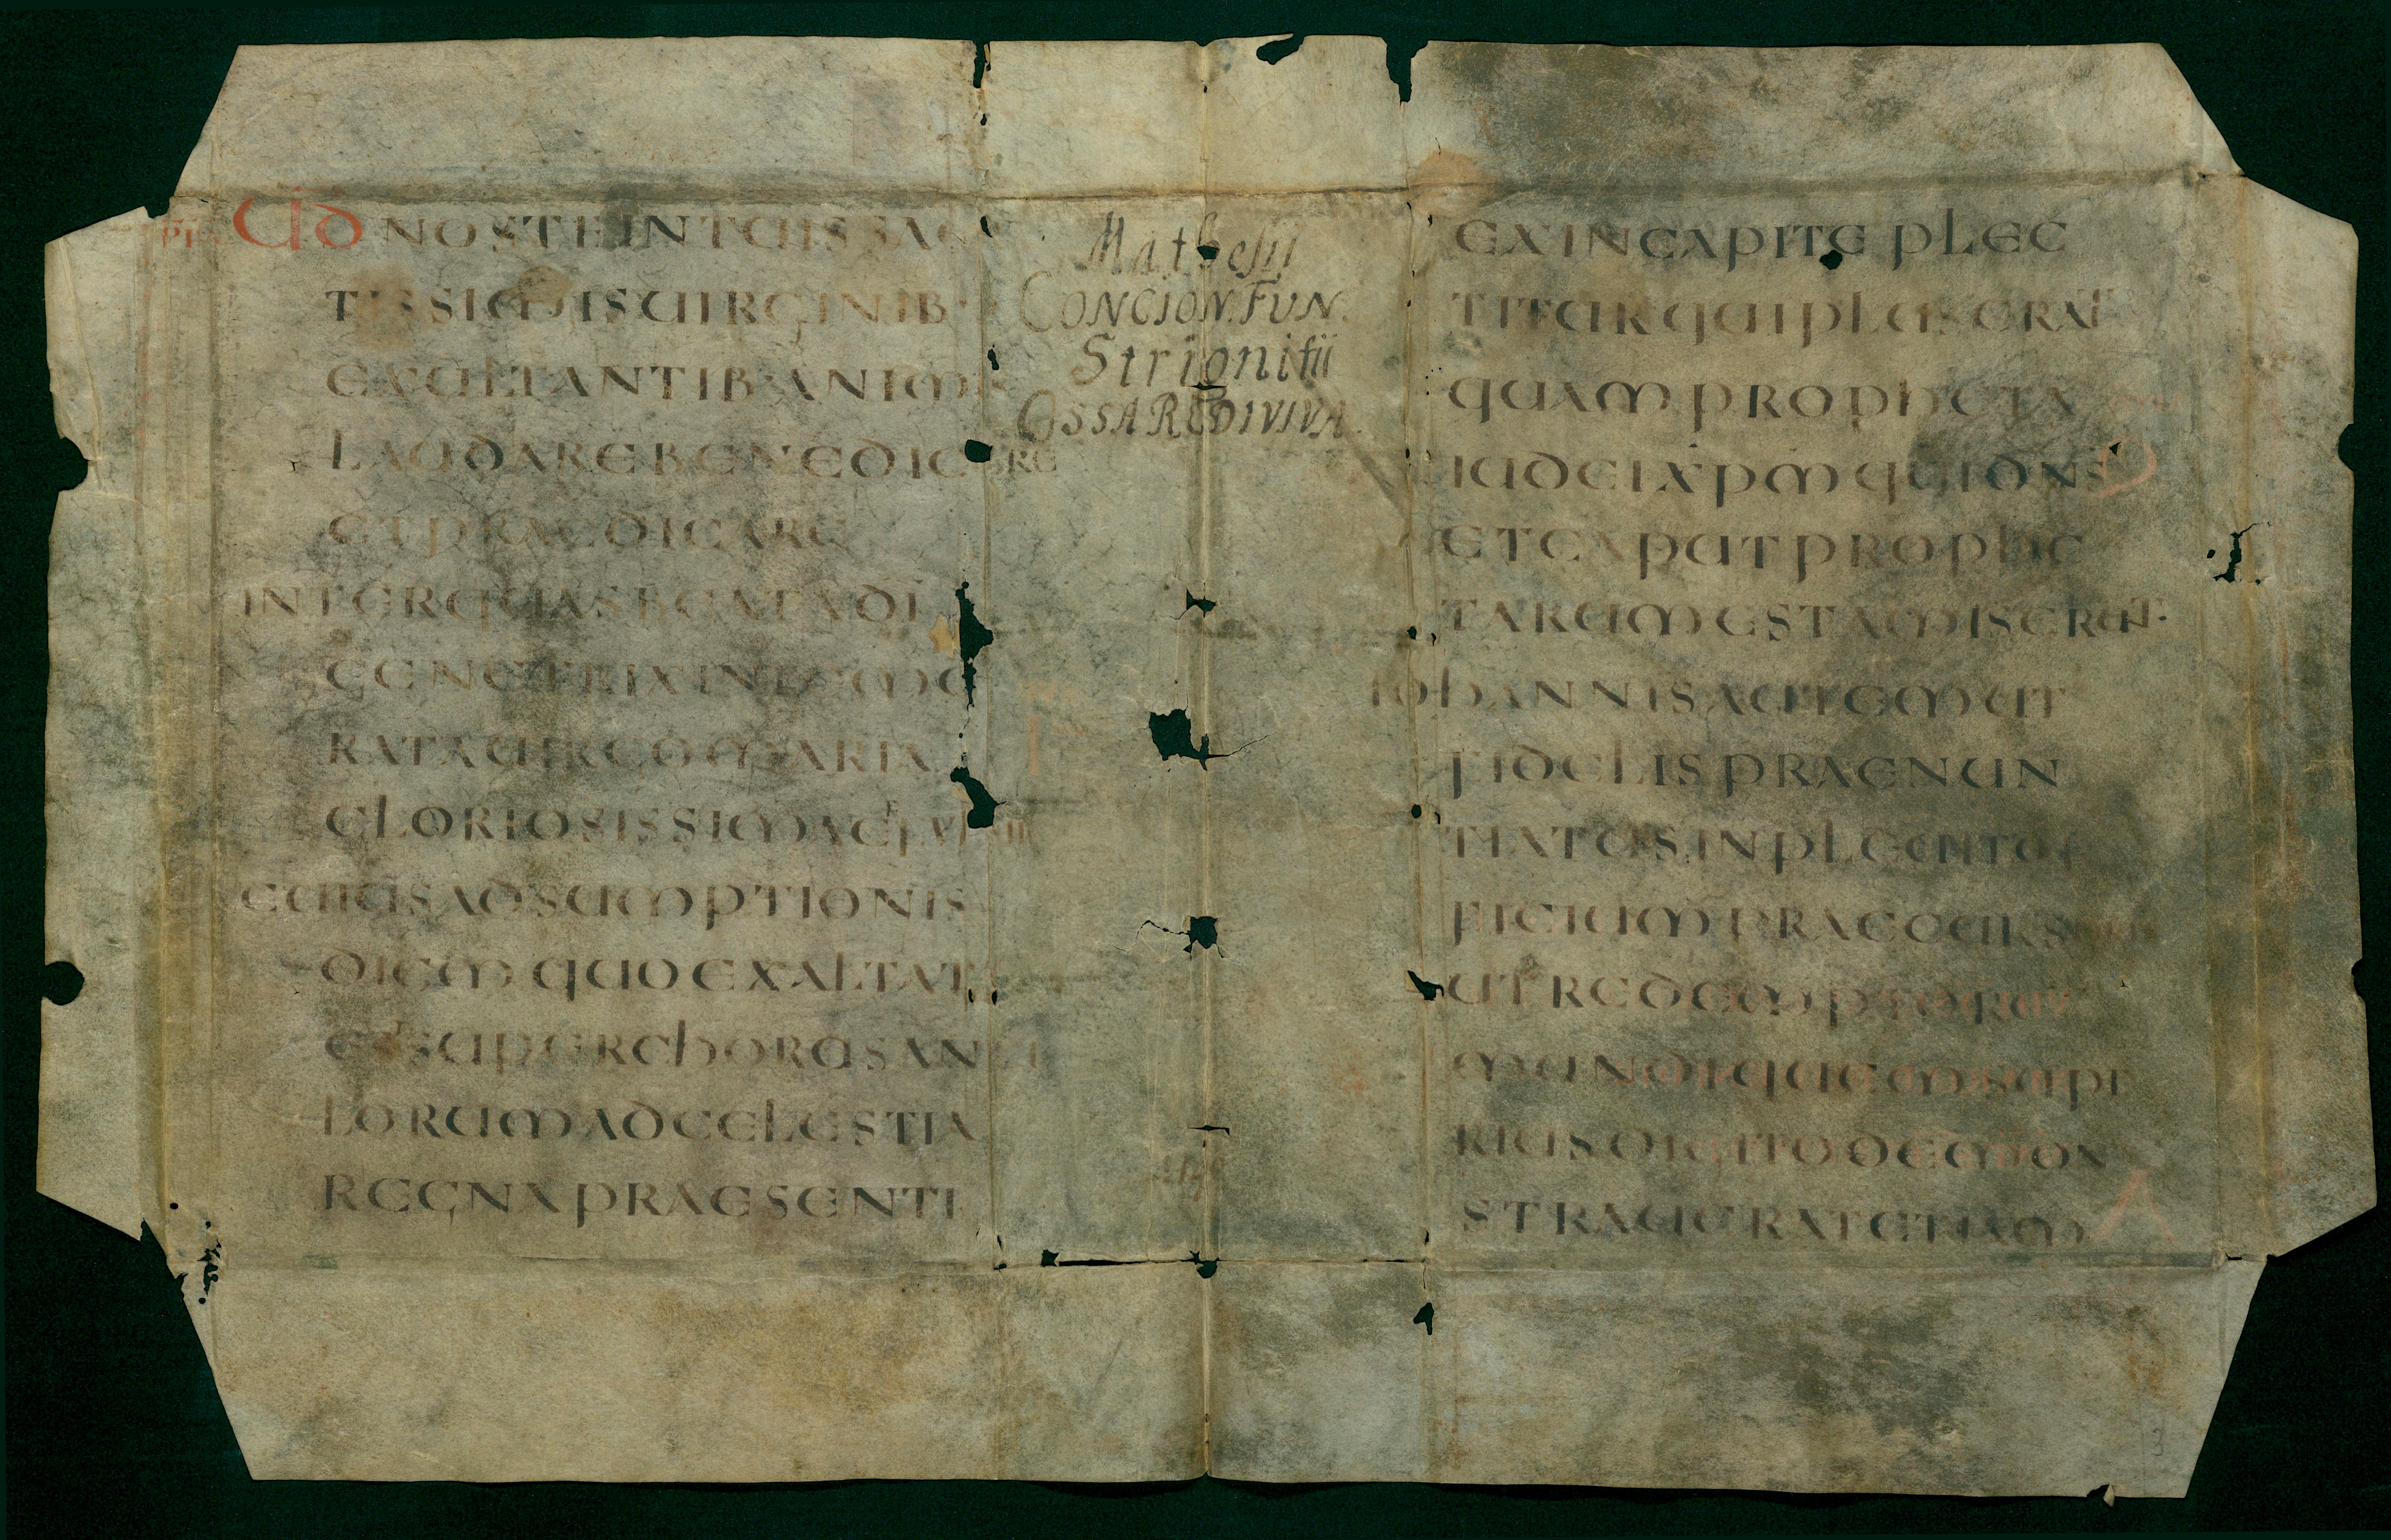 UD NOSTE IN TUIS SAC
TISSIMIS UIRGINIB·
EXULTANTIB· ANIMIS
LAUDARE BENEDICERE
ET PRAEDICARE
INTER QUAS BEATA DI
GENETRIX INTEME
RATA UIRGO MARIA
GLORIOSISSIMA
CUIUS ADSUMPTIONIS
DIEM QUO EXALTATA
EST SUPER CHORUS AN
LORUM AD CELESTIA
REGNA PRAESENTI
Mathesii
CONCION. FUN.
Strigonitii
OSSA REDIVIVA.
EX IN CAPITE PLEC
TITUR QUI PLUS ERAT
QUAM PROPHETA
IUDEI XPM QUI DNS
ET CAPUT PROPHE
TARUM EST AMISERUT·
IOHANNIS AUTEM UT
FIDELIS PRAENUN
TIATUS INPLEUIT OF
FICIUM PRAECURSORIS
UT REDEMPTOREM
MUNDI QUEM SUPE
RIUS DIGITO DEMON
STRAUERAT ETIAM
3